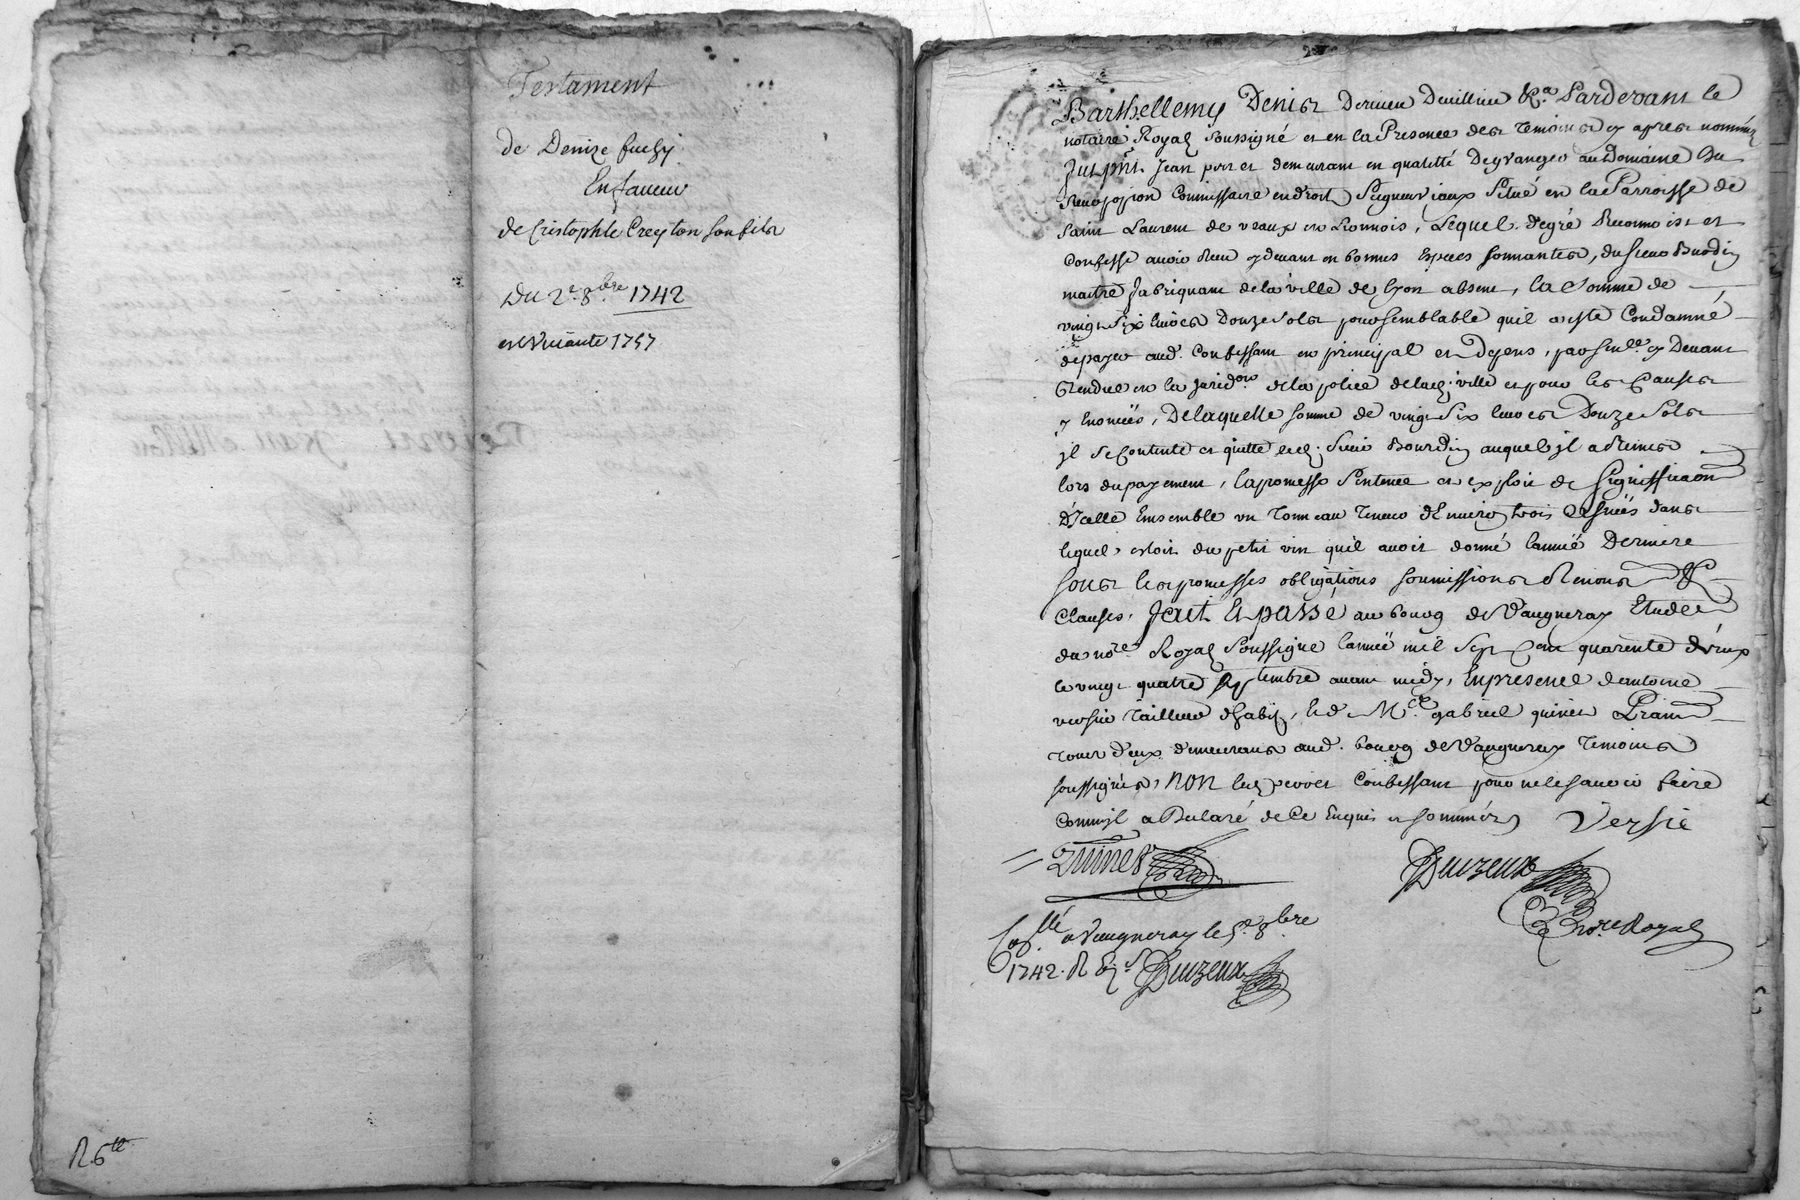 Testament
de Denize fuchy
En faveur
de Cristophle Creyton son fils
Du 2e. 8bre 1742
1757
R 6tt
Barthellemy Denis Pardevant le
notaire Royal soussigné et en la Presence des Temoins cy apres nommés
fut pnt. Jean demeurant en qualitté De granger au Domaine du
Commissaire en droits Seigneuriaux Situé en la Parroisse de
Saint Laurent de veaux en Lionnois, Lequel de gré Reconnoist et
Confesse avoir Receu cy devant en bonnes Especes sonnantes, du sieur Burdin
maitre fabriquant de la ville de Lyon absent, la Somme de
vingt Six livres Douze Sols pour semblable qu'il a esté Condamné
de payer aud. Confessant en principal et depens, par sentce. cy Devant
Rendue en la Juridon. de la police de lad. ville et pour les Causes
y Enoncées, De laquelle somme de vingt Six livres Douze Sols
il se Contente et quitte led. Sieur Bourdin auquel il a Remis
lors du payement, la promesse Sentence et exploit de Signiffication
d'Icelle Ensemble un Tonneau Teneur d'Environ trois Asnées dans
lequel estoit du petit vin qu'il avoit donné l'année Derniere
sous les promesses obligations soumissions Renons. &
Clauses, fait Et passé au bourg de Vaugneray Etude
du nore. Royal soussigné l'année mil Sept Cent quarente deux
le vingt quatre Septembre avant midy, En presence d'antoine
versie Tailleur d'habits, Et de Me. gabriel quinet Praticien
Tous deux demeurans aud. bourg de Vaugneray Temoins
soussignés, non led. Confessant pour ne le savoir faire
Comme il a Declaré de Ce Enquis et sommés Versie
Quinet Duizeux
Nore Royal
Conllé a Vaugneray le 5e 8bre
1742. R Duizeux